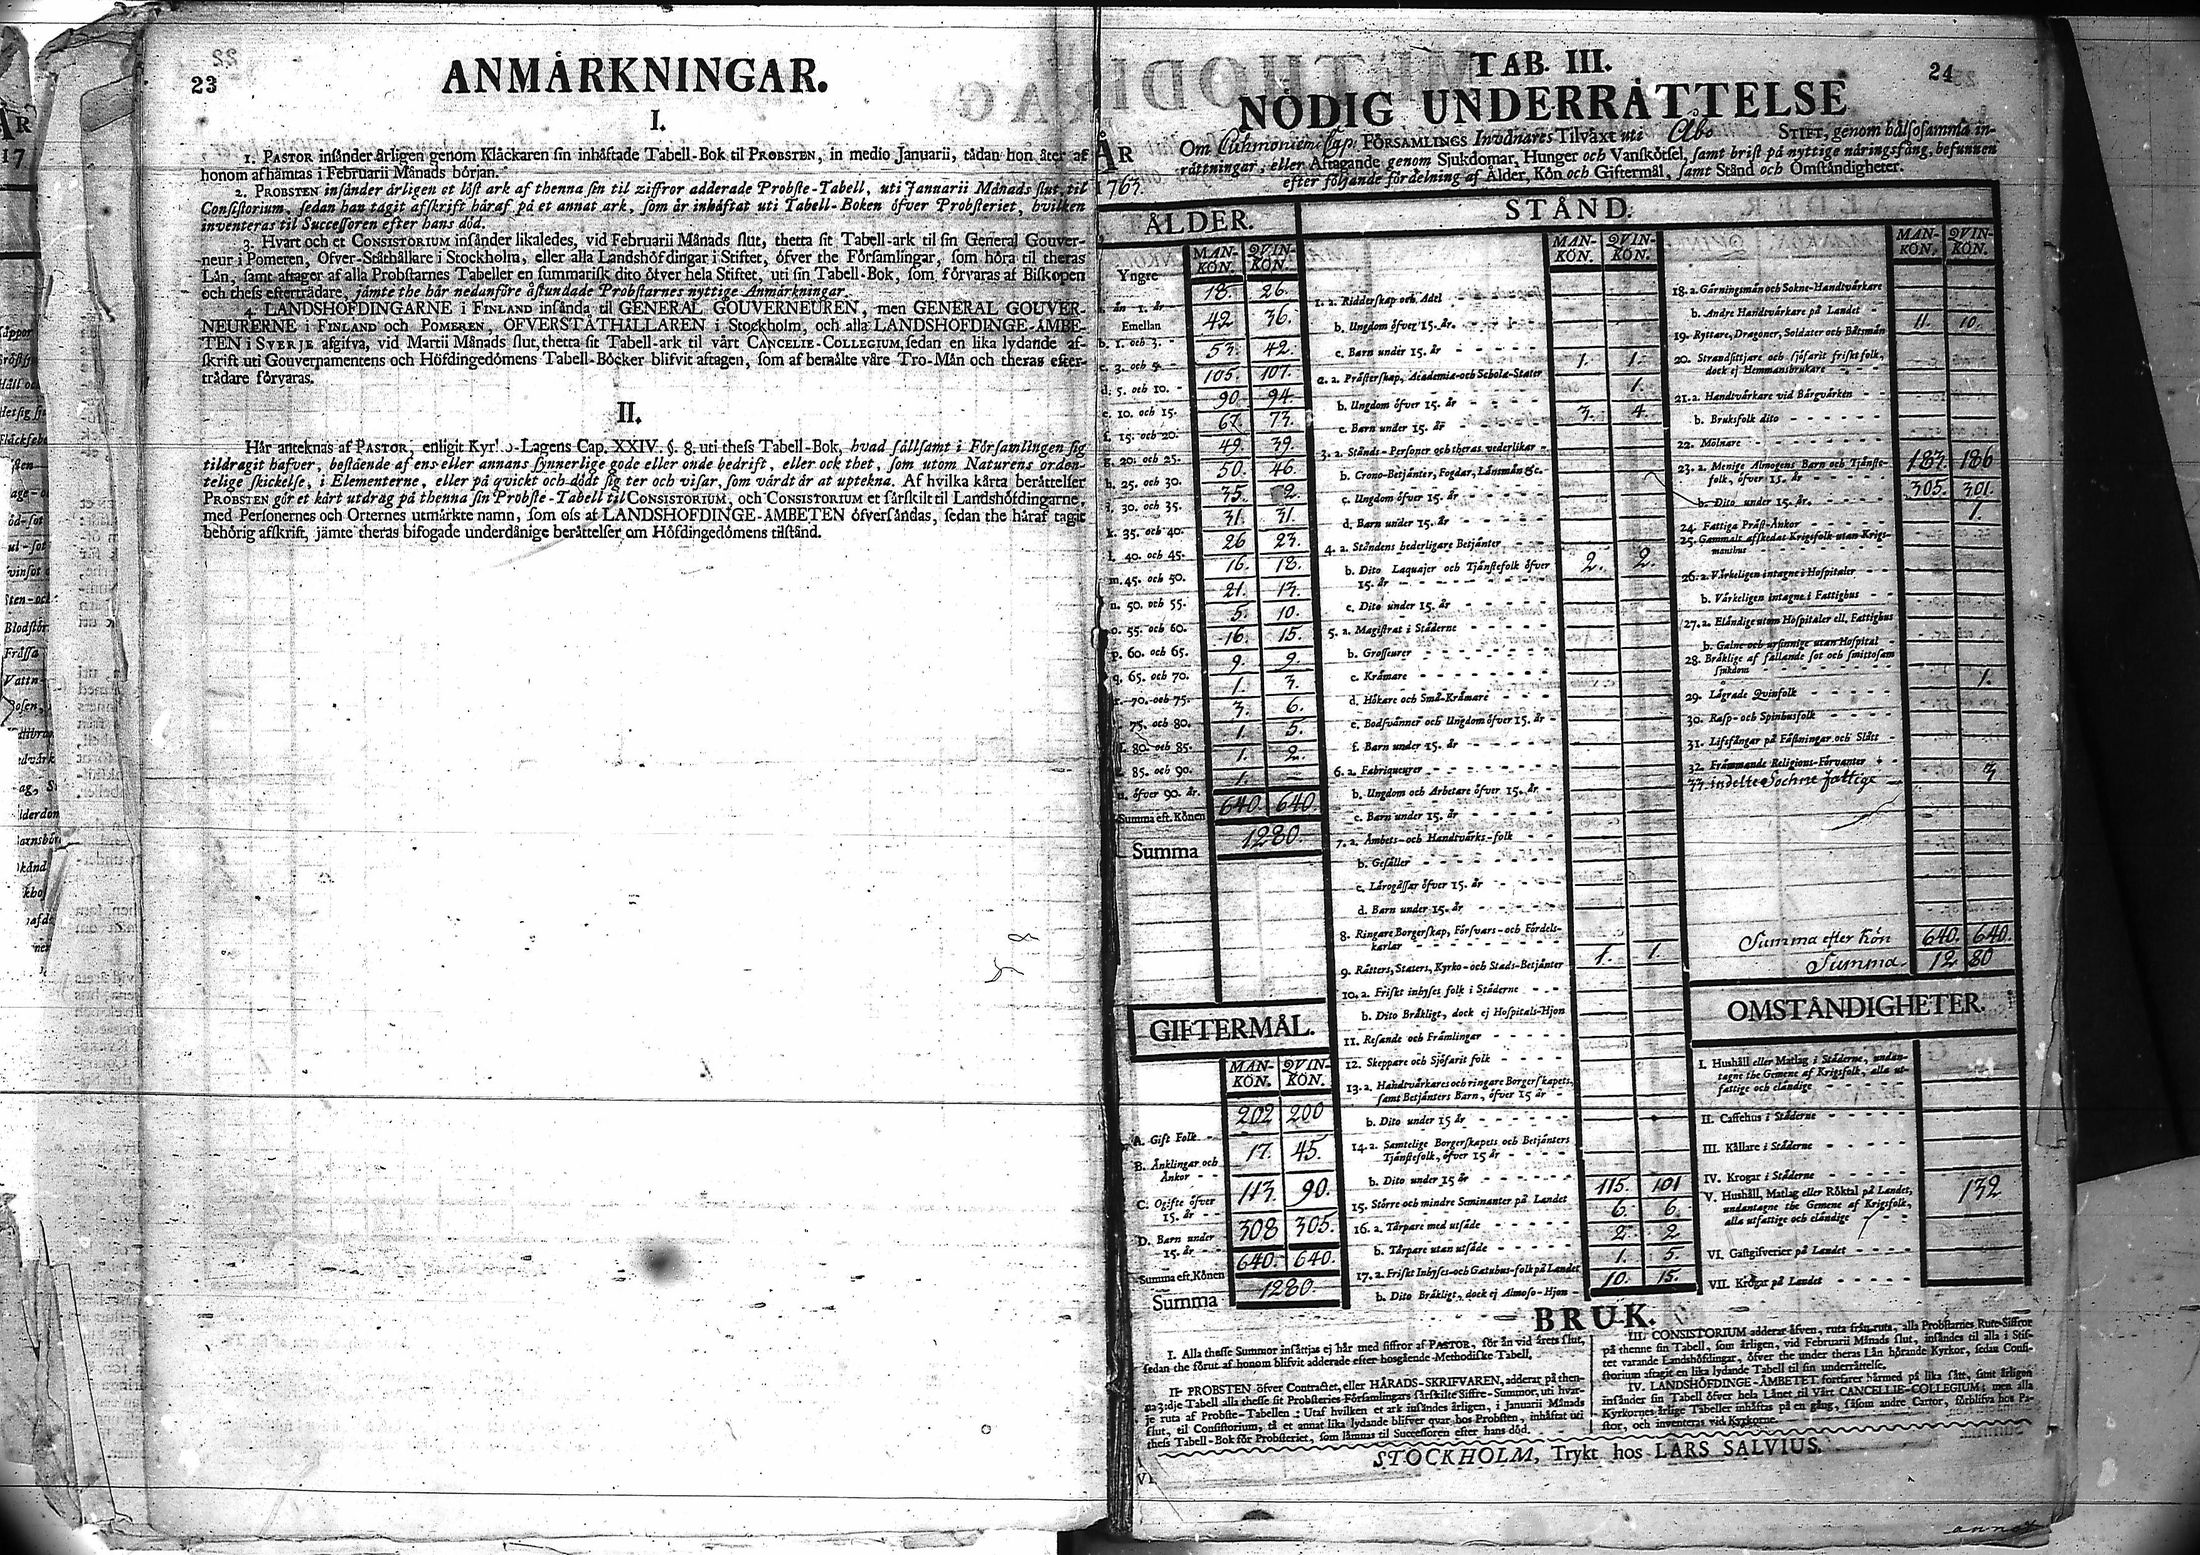 23
ANMÅRKNINGAR.
I.
1. PASTOR insånder årligen genom Klåckaren sin inhåftade Tabell-Bok til PROBSTEN, in medio Januarii, tådan hon åter af
honom afhåmtas i Februarii Månads början.
2. PROBSTEN insånder årligen et löst ark af thenna sin til ziffror adderade Probste-Tabell, uti Januarii Månads slut, til
Consistorium, sedan han tagit afskrift håraf på et annat ark, som år inhåftat uti Tabell-Boken öfver Probsteriet, hvilken
inventeras til Successoren efter hans död.
3. Hvart och et CONSISTORIUM insånder likaledes, vid Februarii Månads slut, thetta sit Tabell-ark til sin General Gouver-
neur i Pomeren, Öfver-Ståthållare i Stockholm, eller alla Landshöfdingar i Stiftet, öfver the Församlingar, som höra til theras
Lån, samt aftager af alla Probstarnes Tabeller en summarisk dito öfver hela Stiftet, uti sin Tabell-Bok, som förvaras af Biskopen
och thess eftertrådare, jåmte the hår nedanföre åstundade Probstarnes nyttige Anmårkningar.
4. LANDSHÖFDINGARNE i FINLAND insånda til GENERAL GOUVERNEUREN, men GENERAL GOUVER-
NEURERNE i FINLAND och POMEREN, ÖFVERSTÅTHÅLLAREN i Stockholm, och alla LANDSHÖFDINGE-ÅMBE-
TEN i SVERJE afgifva, vid Martii Månads slut, thetta sit Tabell-ark til vårt CANCELIE-COLLEGIUM, sedan en lika lydande af-
skrift uti Gouvernamentens och Höfdingedömens Tabell-Böcker blifvit aftagen, som af bemålte våre Tro-Mån och theras efter-
trådare förvaras.
II.
Hår anteknas af PASTOR, enligit Kyrko-Lagens Cap. XXIV. §. 8. uti thess Tabell-Bok, hvad sållsamt i Församlingen sig
tildragit hafver, bestående af ens eller annans synnerlige gode eller onde bedrift, eller ock thet, som utom Naturens orden-
telige skickelse, i Elementerne, eller på qvickt och dödt sig ter och visar, som vårdt år at uptekna. Af hvilka kårta beråttelser
PROBSTEN gör et kårt utdrag på thenna sin Probste-Tabell til CONSISTORIUM, och CONSISTORIUM et sårskilt til Landshöfdingarne,
med Personernes och Orternes utmårkte namn, som oss af LANDSHÖFDINGE-ÅMBETEN öfversåndas, sedan the håraf tagit
behörig afskrift, jåmte theras bifogade underdånige beråttelser om Höfdingedömens tilstånd.
24
TAB. III.
NÖDIG UNDERRÅTTELSE
ÅR 1763.
Om Cap: FÖRSAMLINGS Invånares Tilvåxt uti Åbo STIFT, genom hålsosamma in-
råttningar, eller Aftagande genom Sjukdomar, Hunger och Vanskötsel, samt brist på nyttige nåringsfång, befunnen
efter följande fördelning af Ålder, Kön och Giftermål, samt Stånd och Omståndigheter.
ÅLDER.
MAN-KÖN. QVIN-KÖN.
Yngre
ån 1. år 18. 26.
Emellan
b. 1. och 3. - 42 36.
c. 3. och 5. 53. 42.
d. 5. och 10. - 105. 107.
e. 10. och 15. 90. 94.
f. 15. och 20. 67. 73.
g. 20. och 25. 49. 39.
h. 25. och 30. 50. 46.
i. 30. och 35. 35. 2.
k. 35. och 40. 31. 31.
l. 40. och 45. 26 23.
m. 45. och 50. 16. 18.
n. 50. och 55. 21. 13.
o. 55. och 60. 5. 10.
p. 60. och 65. 16. 15.
q. 65. och 70. 9. 9.
r. 70. och 75. 1. 3.
75. och 80. 3. 6.
80. och 85. 1. 5.
85. och 90. 1. 2.
u. öfver 90. år. 1.
Summa eft. Könen 640. 640.
Summa 1280.
GIFTERMÅL.
MAN-KÖN. QVIN-KÖN.
A. Gift Folk - 202 200
B. Ånklingar och Ånkor - 17. 45.
C. Ogifte öfver 15. år - 113. 90.
D. Barn under 15. år - 308 305.
Summa eft. Könen 640. 640.
Summa 1280.
STÅND.
MAN-KÖN. QVIN-KÖN.
1. a. Ridderskap och Adel
b. Ungdom öfver 15. år
c. Barn under 15. år
2. a. Pråsterskap, Academiæ-och Scholæ-Stater 1. 1.
b. Ungdom öfver 15. år 1.
c. Barn under 15. år 3. 4.
3. a. Stånds-Personer och theras vederlikar
b. Crono-Betjånter, Fogdar, Lånsmån &c.
c. Ungdom öfver 15. år
d. Barn under 15. år
4. a. Ståndens hederligare Betjånter
b. Dito Laquajer och Tjånstefolk öfver 15. år 2. 2.
c. Dito under 15. år
5. a. Magistrat i Ståderne
b. Grosseurer
c. Kråmare
d. Hökare och Små-Kråmare
e. Bodsvånner och Ungdom öfver 15. år
f. Barn under 15. år
6. a. Fabriqueurer
b. Ungdom och Arbetare öfver 15. år
c. Barn under 15. år
7. a. Åmbets-och Handtvårks-folk
b. Gesåller
c. Lårogåssar öfver 15. år
d. Barn under 15. år
8. Ringare Borgerskap, Försvars-och Fördels-karlar
9. Råtters, Staters, Kyrko-och Stads-Betjånter 1. 1.
10. a. Friskt inhyses folk i Ståderne
b. Dito Bråkligt, dock ej Hospitals-Hjon
11. Resande och Fråmlingar
12. Skeppare och Sjöfarit folk
13. a. Handtvårkares och ringare Borgerskapets, samt Betjånters Barn, öfver 15 år
b. Dito under 15 år
14. a. Samtelige Borgerskapets och Betjånters Tjånstefolk, öfver 15 år
b. Dito under 15 år
15. Större och mindre Seminanter på Landet 115. 101
16. a. Tårpare med utsåde 6. 6.
b. Tårpare utan utsåde 2. 2
17. a. Friskt Inhyses-och Gatuhus-folk på Landet 1. 5.
b. Dito Bråkligt, dock ej Almoso-Hjon 10. 15.
MAN-KÖN. QVIN-KÖN.
18. a. Gårningsmån och Sokne-Handtvårkare
b. Andre Handtvårkare på Landet
19. Ryttare, Dragoner, Soldater och Båtsmån 11. 10.
20. Strandsittjare och sjöfarit friskt folk, dock ej Hemmansbrukare
21. a. Handtvårkare vid Bårgvårken
b. Bruksfolk dito
22. Mölnare
23. a. Menige Almogens Barn och Tjånstefolk, öfver 15. år 183. 186
b. Dito under 15. år. 305. 301.
24. Fattiga Pråst-Ånkor 1.
25. Gammalt afskedat Krigsfolk utan Krigsmanshus
26. a. Vårkeligen intagne i Hospitaler
b. Vårkeligen intagne i Fattighus
27. a. Elåndige utom Hospitaler ell. Fattighus
b. Galne och ursinnige utan Hospital
28. Bråklige af fallande sot och smittosam sjukdom
29. Lågrade Qvinfolk 1.
30. Rasp-och Spinhusfolk
31. Lifsfångar på Fåstningar och Slått
32. Fråmmande Religions-Förvanter
33 indelte Sochne fattige 3
Summa efter Kön 640. 640.
Summa. 12 80
OMSTÅNDIGHETER.
I. Hushåll eller Matlag i Ståderne, undan-
tagne the Gemene af Krigsfolk, alla ut-
fattige och elåndige
II. Caffehus i Ståderne
III. Kållare i Ståderne
IV. Krogar i Ståderne
V. Hushåll, Matlag eller Röktal på Landet,
undantagne the Gemene af Krigsfolk,
alla utfattige och elåndige 132
VI. Gåstgifverier på Landet
VII. Krogar på Landet
BRUK.
I. Alla thesse Summor insåttjas ej hår med siffror af PASTOR, för ån vid årets slut,
sedan the förut af honom blifvit adderade efter hosgående Methodiske Tabell.
II. PROBSTEN öfver Contractet, eller HÅRADS-SKRIFVAREN, adderar på then-
na 3:dje Tabell alla thesse sit Probsteries Församlingars sårskilte Siffre-Summor, uti hvar-
je ruta af Probste-Tabellen: Utaf hvilken et ark insåndes årligen, i Januarii Månads
slut, til Consistorium, tå et annat lika lydande blifver qvar hos Probsten, inhåftat uti
thess Tabell-Bok för Probsteriet, som låmnas til Successoren efter hans död.
III. CONSISTORIUM adderar åfven, ruta från ruta, alla Probstarnes Rute-Siffror
på thenne sin Tabell, som årligen, vid Februarii Månads slut, insåndes til alla i Stif-
tet varande Landshöfdingar, öfver the under theras Lån hörande Kyrkor, sedan Consi-
storium aftagit en lika lydande Tabell til sin underråttelse.
IV. LANDSHÖFDINGE-ÅMBETET fortfarer hårmed på lika sått, samt årligen
insånder sin Tabell öfver hela Lånet til Vårt CANCELLIE-COLLEGIUM; men alla
Kyrkornes årlige Tabeller inhåftas på en gång, såsom andre Cartor, förblifva hos Pa-
stor, och inventeras vid Kyrkorne.
STOCKHOLM, Trykt hos LARS SALVIUS.